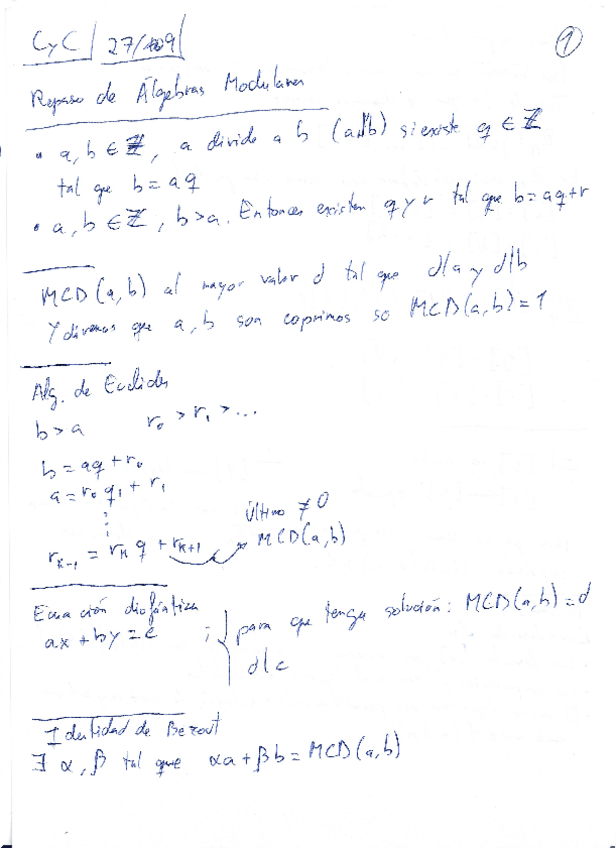 CyC 27/09
1
Repaso de Álgebras Modulares
• a, b ∈ ℤ, a divide a b (a|b) si existe q ∈ ℤ
tal que b = aq
• a, b ∈ ℤ, b > a. Entonces existen q y r tal que b = aq + r
MCD(a, b) al mayor valor d tal que d|a y d|b
Y diremos que a, b son coprimos so MCD(a, b) = 1
Alg. de Euclides
b > a r₀ > r₁ > ...
b = aq + r₀
a = r₀ q₁ + r₁
⋮
Último ≠ 0
rₖ₋₁ = rₖ q + rₖ₊₁ → MCD(a, b)
Ecuación diofántica
ax + by = c ; { para que tenga solución: MCD(a, b) = d
d|c
Identidad de Bezout
∃ α, β tal que αa + βb = MCD(a, b)